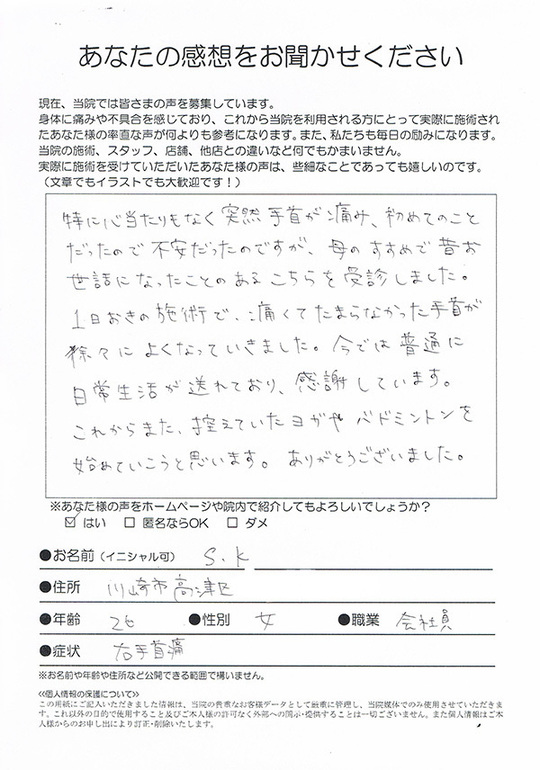 あなたの感想をお聞かせください
現在、当院では皆さまの声を募集しています。
身体に痛みや不具合を感じており、これから当院を利用される方にとって実際に施術され
たあなた様の率直な声が何よりも参考になります。また、私たちも毎日の励みになります。
当院の施術、スタッフ、店舗、他店との違いなど何でもかまいません。
実際に施術を受けていただいたあなた様の声は、些細なことであっても嬉しいのです。
（文章でもイラストでも大歓迎です！）
特に心当たりもなく突然手首が痛み、初めてのこと
だったので不安だったのですが、母のすすめで昔お
世話になったことのあるこちらを受診しました。
1日おきの施術で、痛くてたまらなかった手首が
徐々によくなっていきました。今では普通に
日常生活が送れており、感謝しています。
これからまた、控えていたヨガやバドミントンを
始めていこうと思います。ありがとうございました。
※あなた様の声をホームページや院内で紹介してもよろしいでしょうか？
☑ はい □ 匿名ならOK □ ダメ
●お名前（イニシャル可） S.K
●住所 川崎市高津区
●年齢 26 ●性別 女 ●職業 会社員
●症状 右手首痛
※お名前や年齢や住所など公開できる範囲で構いません。
≪個人情報の保護について≫
この用紙にご記入いただきました情報は、当院の貴重なお客様データとして厳重に管理し、当院媒体でのみ使用させていただきま
す。これ以外の目的で使用すること及びご本人様の許可なく外部への開示・提供することは一切ございません。また個人情報はご本
人様からのお申し出により訂正・削除いたします。